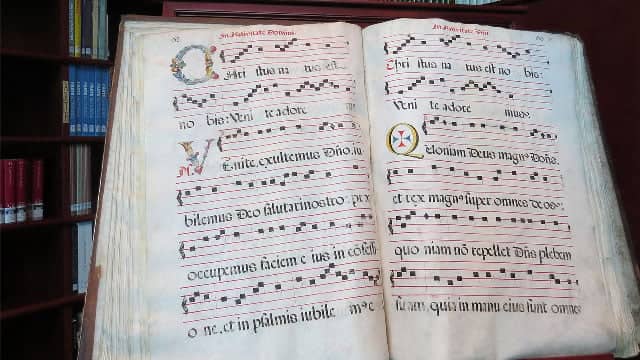 In Nativitate Domini
Chri stus na tus est no
no bis: Veni te adore
Venite, exultemus Dño, iu
bilemus Deo salutari nostro: præ
occupemus faciem e ius in cōfessi
o ne, et in psalmis iubile
In Nativitate Dñi
Chri stus na tus est no bis:
Veni te adore mus
Quoniam Deus magnꝰ Dñs,
et rex magnꝰ super omnes deos:
quo niam nō repellet Dñs plebem
suam, quia in manu eius sunt omnes